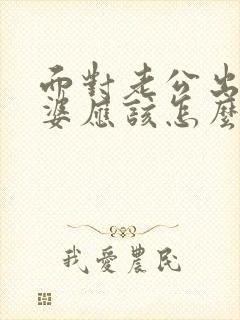 面對老公出
婆應該怎麼
我愛農民